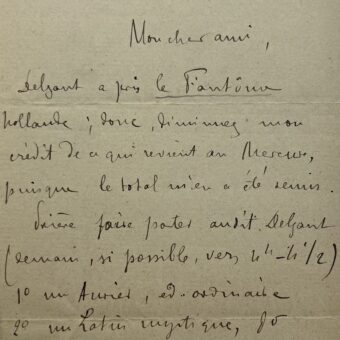 Mon cher ami,
Delzant a pris le Fantôme
hollande ; donc, diminuez mon
crédit de ce qui revient au Mercure,
puisque le total m'en a été remis.
Prière faire porter audit Delzant
(demain, si possible, vers 4h-4h 1/2)
1º un Aurier, ed. ordinaire
2º un Latin mystique,